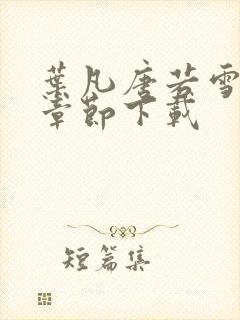 葉凡唐若雪
章節下載
短篇集